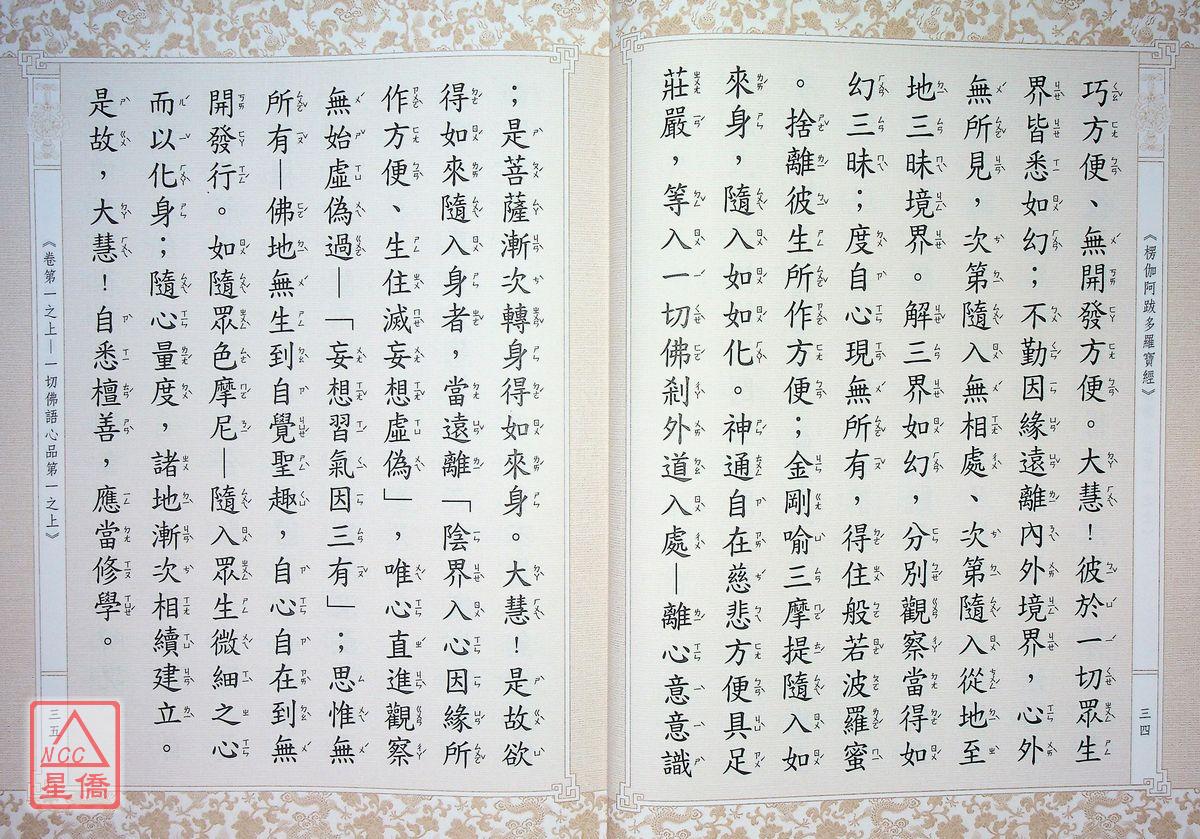 《楞伽阿跋多羅寶經》
三四
巧方便、無開發方便。大慧！彼於一切眾生
界皆悉如幻；不勤因緣遠離內外境界，心外
無所見，次第隨入無相處、次第隨入從地至
地三昧境界。解三界如幻，分別觀察當得如
幻三昧；度自心現無所有，得住般若波羅蜜
。捨離彼生所作方便；金剛喻三摩提隨入如
來身，隨入如如化。神通自在慈悲方便具足
莊嚴，等入一切佛剎外道入處—離心意意識
；是菩薩漸次轉身得如來身。大慧！是故欲
得如來隨入身者，當遠離「陰界入心因緣所
作方便、生住滅妄想虛偽」，唯心直進觀察
無始虛偽過—「妄想習氣因三有」；思惟無
所有—佛地無生到自覺聖趣，自心自在到無
開發行。如隨眾色摩尼—隨入眾生微細之心
而以化身；隨心量度，諸地漸次相續建立。
是故，大慧！自悉檀善，應當修學。
《卷第一之上—一切佛語心品第一之上》
三五
NCC
星僑